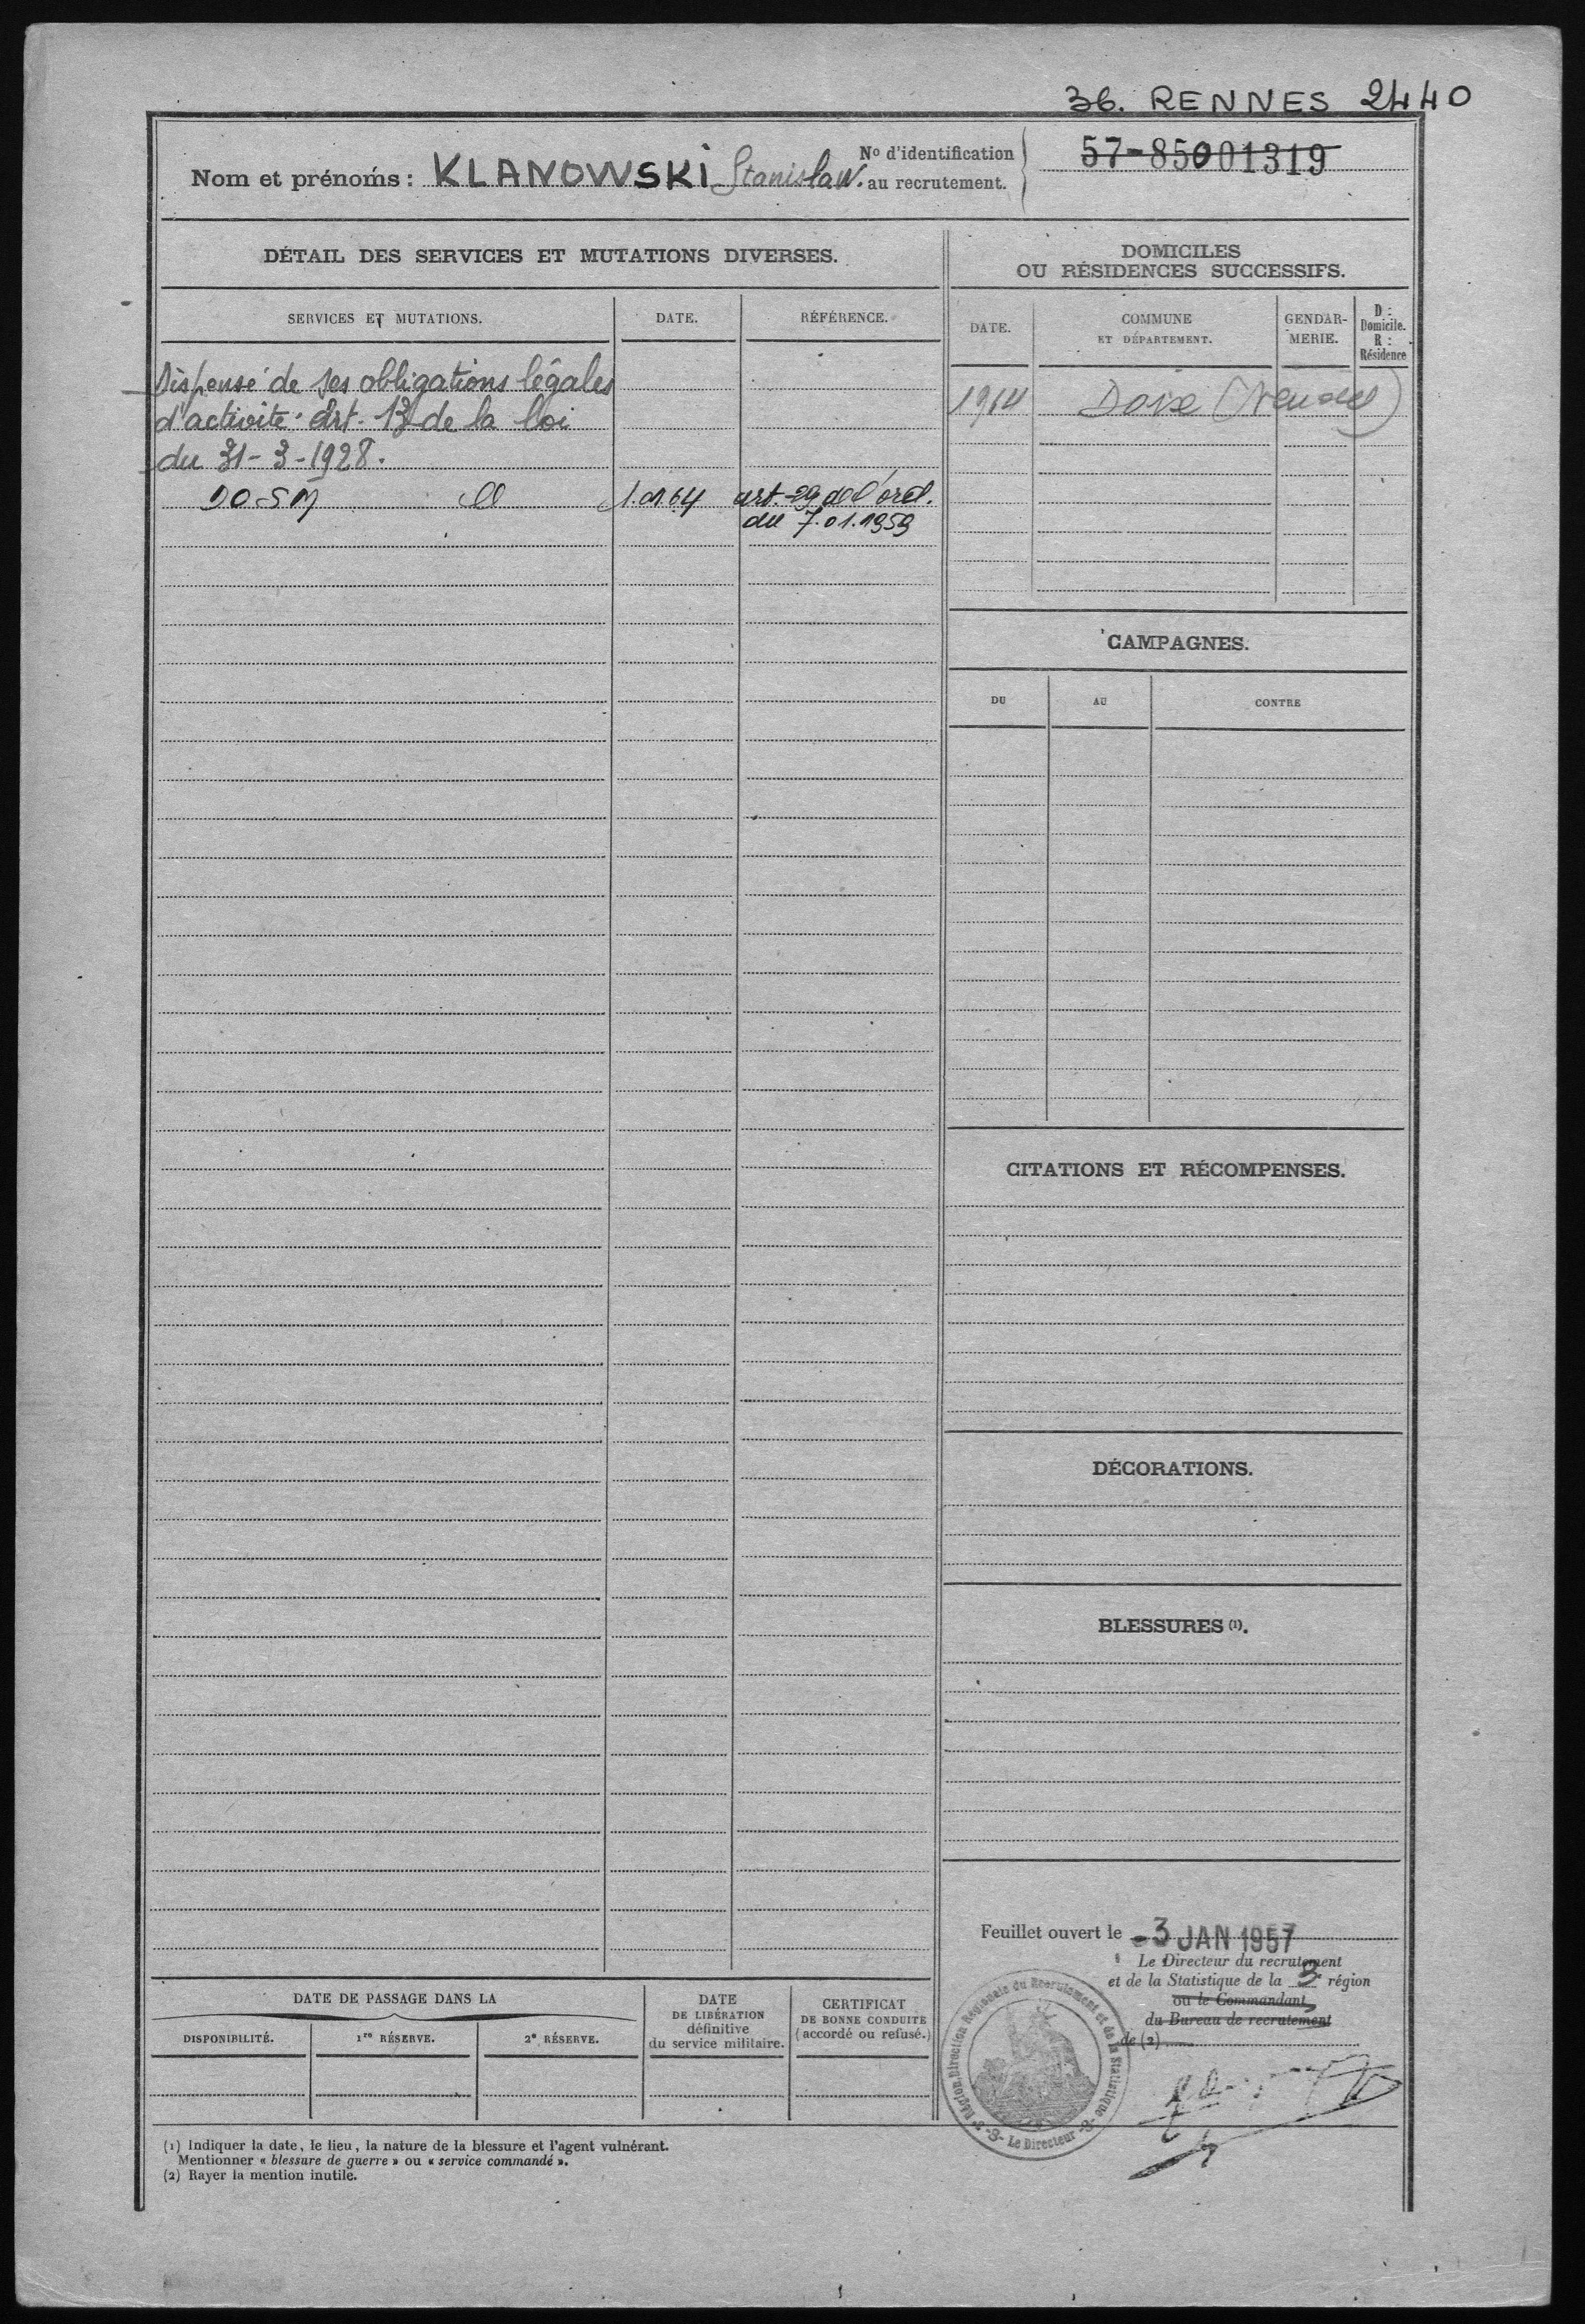 36. RENNES 2440
Nom et prénoms : KLANOWSKI Stanislaw.
N° d'identification
au recrutement.
57-85001319
DÉTAIL DES SERVICES ET MUTATIONS DIVERSES.
SERVICES ET MUTATIONS.
DATE.
RÉFÉRENCE.
Dispensé de ses obligations légales
d'activité: Art. 13 de la loi
du 31-3-1928.
DOSM
1.01.64
art. 29 de l'ord.
du 7.01.1959
DOMICILES
OU RÉSIDENCES SUCCESSIFS.
DATE.
COMMUNE
ET DÉPARTEMENT.
GENDAR-
MERIE.
D :
Domicile.
R :
Résidence
Doix (Vendée)
CAMPAGNES.
DU
AU
CONTRE
CITATIONS ET RÉCOMPENSES.
DÉCORATIONS.
BLESSURES (1).
Feuillet ouvert le -3 JAN 1957
Le Directeur du recrutement
et de la Statistique de la 3e région
ou le Commandant
du Bureau de recrutement
de (2)
Direction Régionale du Recrutement et de la Statistique
Le Directeur
DATE DE PASSAGE DANS LA
DISPONIBILITÉ.
1re RÉSERVE.
2e RÉSERVE.
DATE
DE LIBÉRATION
définitive
du service militaire.
CERTIFICAT
DE BONNE CONDUITE
(accordé ou refusé.)
(1) Indiquer la date, le lieu, la nature de la blessure et l'agent vulnérant.
Mentionner « blessure de guerre » ou « service commandé ».
(2) Rayer la mention inutile.